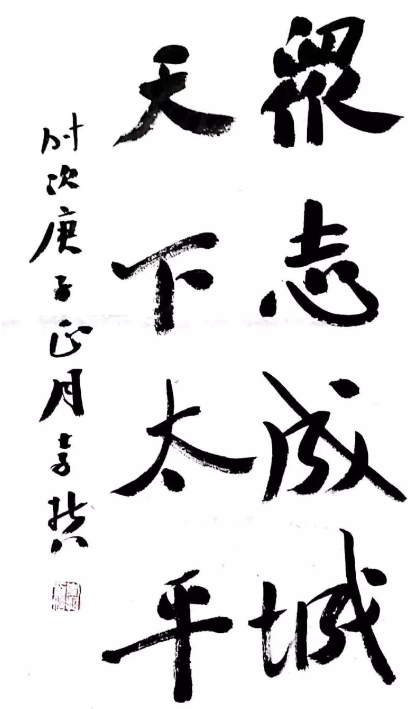 眾志成城
天下太平
时次庚子正月